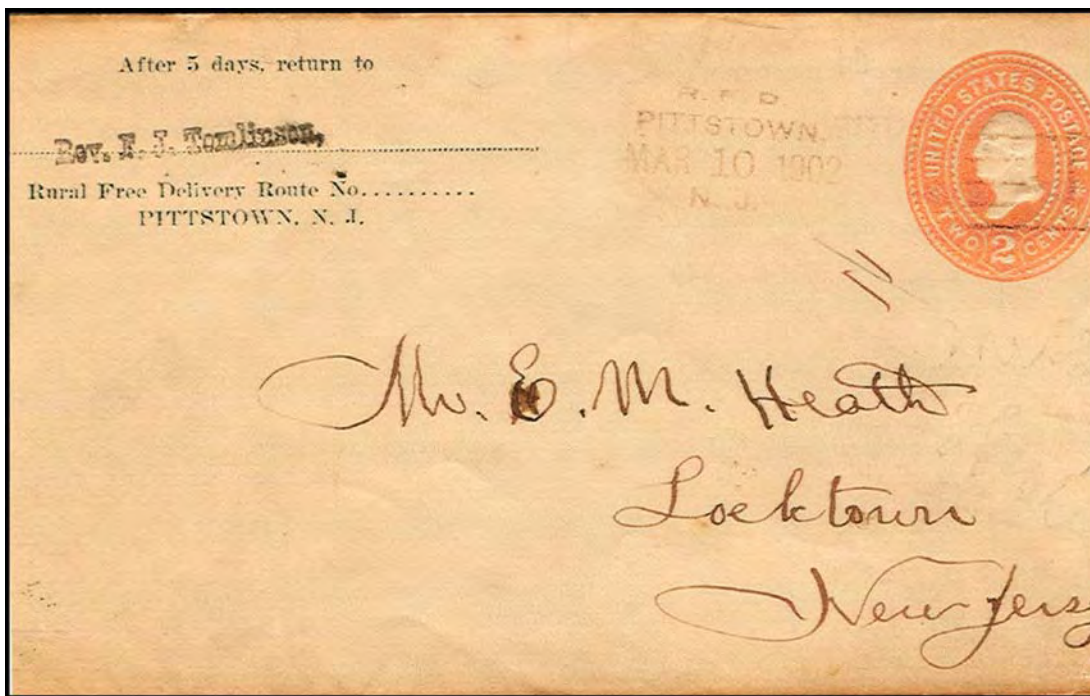 After 5 days, return to
Rev. E. J. Tomlinson,
Rural Free Delivery Route No..........
PITTSTOWN, N. J.
R. F. D.
PITTSTOWN.
MAR 10 1902
N. J.
UNITED STATES POSTAGE
TWO 2 CENTS
Mr. E. M. Heath
Locktown
New Jersey